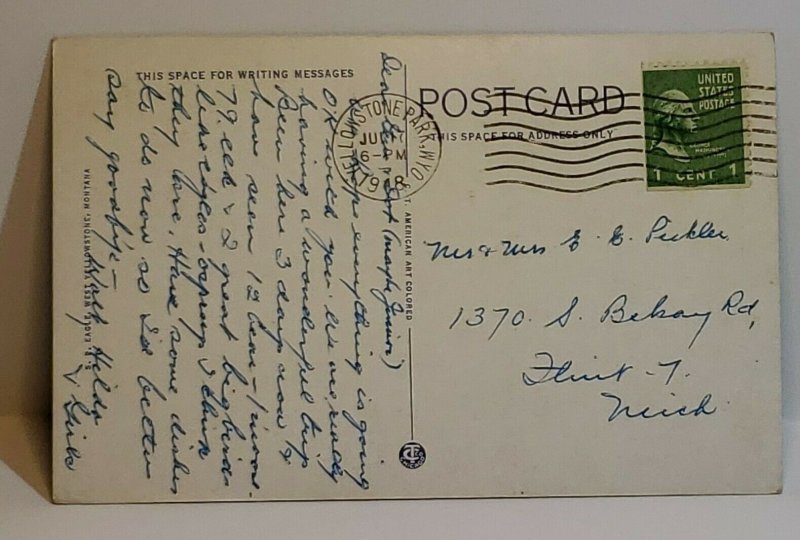 THIS SPACE FOR WRITING MESSAGES
POST CARD
THIS SPACE FOR ADDRESS ONLY
YELLOWSTONE PARK, WYO.
6-PM
UNITED
STATES
POSTAGE
1 CENT 1
T. AMERICAN ART COLORED
WEST YELLOWSTONE, MONTANA
CHICAGO
Dear (maybe Junior)
hope everything is going
OK with you. We are really
having a wonderful trip
Been here 3 days now &
have seen 12 bear - 1 moose
79 elk & 2 great big birds
like eagles - osprey I think
they are. Have some dishes
to do now so I'd better
say goodbye -
Walt Hilda
& Girls
Mr & Mrs E. E. Pickler
1370 S. Rd,
Flint - 7.
Mich